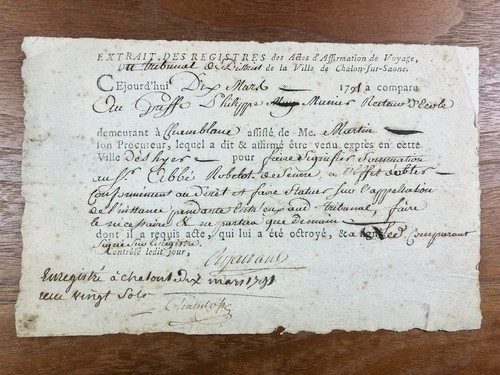 EXTRAIT DES REGISTRES des Actes d'Affirmation de Voyage,
au tribunal de District de la Ville de Chalon-sur-Saone.
CEjourd'hui Dix Mars 1791 a comparu
Au Greffe Philippe Munier Recteur d'Ecole
demeurant à assisté de Me. Martin
son Procureur, lequel a dit & affirmé être venu exprès en cette
Ville dès hyer pour faire signifier Sommation
au Sr. Abbé Robelot de a l'effet
Conformément au et faire statuer sur l'appellation
de l'instance pendante aud tribunal, faire
le nécessaire & ne partir que Demain
dont il a requis acte, qui lui a été octroyé, & a signé led. Comparant
Signé sur le Registre.
Contrôlé ledit jour,
Enregistré à chalon le dix mars 1791
reçu vingt Sols